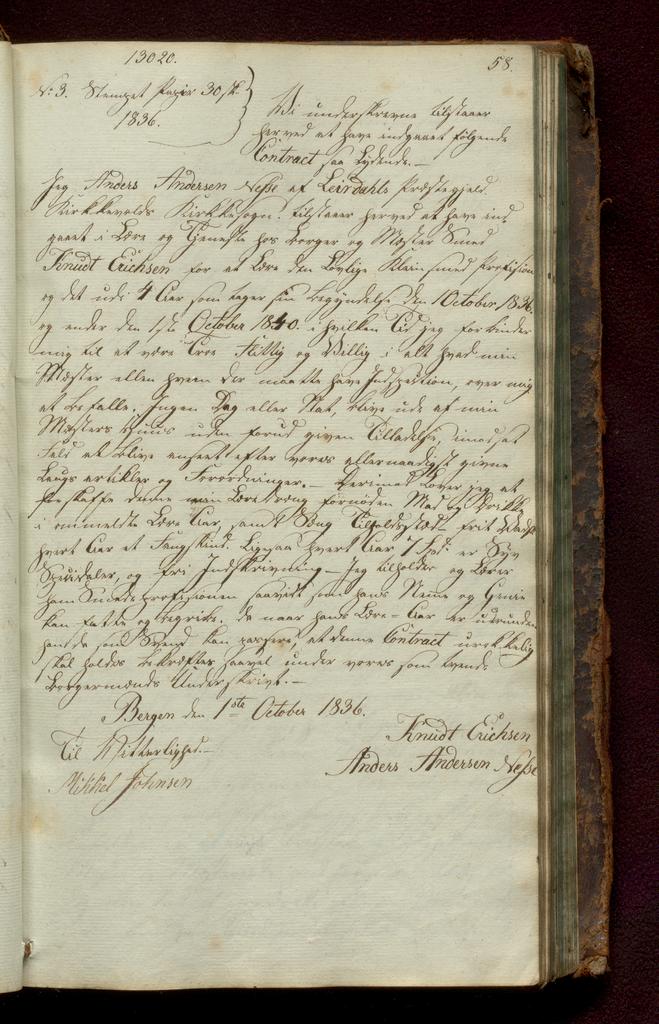 13020.
58.
No: 3. Stemplet Papir 30 sk.
1836.
Vi underskrevne tilstaaer
herved at have indgaaet følgende
Contract saa lydende. —
Jeg Anders Andersen Nesse af Leirdahls Præstegjeld
Kirkkevolds Kirkkesogn. tilstaaer herved at have ind
gaaet i Lære og Tjeneste hos Borger og Mæster Smed
Knudt Erichsen for at Lære den Lovlige Kleinsmed Profision
og det udi 4 Aar som tager sin Begyndelse den 1 October 1836.
og ender den 1ste October 1840. i hvilken Tid jeg forbinder
mig til at være Troe Flittig og Villig i alt hvad min
Mæster eller hvem der maatte have Indspection, over mig
at befalle. Ingen Dag eller Nat, blive ude af min
Mæsters Huus uden forud given Tilladelse, imodsat
Fald at blive anseet efter vores allernaadigst givne
Laugs artikler og Forordninger. — Derimod Lover jeg at
forskaffe denne min Læredreng fornøden Mad og Drikke
i ommeldte Lære Aar, samt Seng frit
hvert Aar et Ligesaa hvert Aar 7 Spd. er Syv
Specidaler, og fri Indskrivning — Jeg tilholder og Lærer
ham Smede profisionen saavidt som hans Neme og Genie
kan fatte og begribe. da naar hans Lære-Aar er udrunden
han da som Svend kan passere, at denne Contract urokkelig
skal holdes bekræftes saavel under vores som tvende
Borgermænds Underskrivt. —
Bergen den 1ste October 1836.
Knudt Erichsen
Til Vitterlighed. —
Anders Andersen Nesse
Mikkel Johnsen